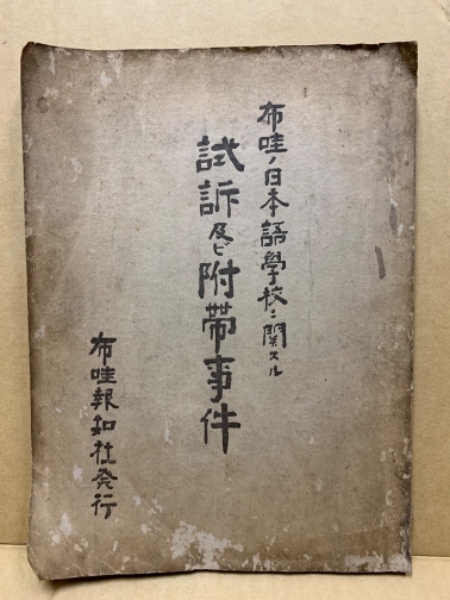 布哇ノ日本語學校ニ關スル
試訴及ビ附帶事件
布哇報知社発行